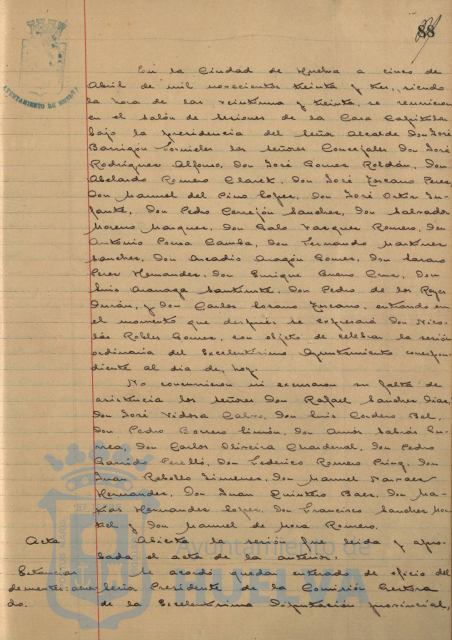 88
AYUNTAMIENTO DE HUELVA
En la Ciudad de Huelva a cinco de
Abril de mil novecientos treinta y tres, siendo
la hora de las veintiuna y treinta, se reunieron
en el salón de sesiones de la Casa Capitular
bajo la presidencia del Señor Alcalde Don José
Barrigón los señores Concejales Don José
Rodríguez Alfonso, Don José Gomez Roldán, Don
Abelardo Romero Claret, Don José Lozcano Perez,
Don Manuel del Pino Lopez, Don José Ortiz In-
fante, Don Pedro Cerrejón Sanchez, Don Salvador
Moreno Marquez, Don Galo Vazquez Romero, Don
Antonio Ponsa Camba, Don Fernando Martinez
Sanchez, Don Arcadio Aragón Gomez, Don
Perez Hernandez, Don Enrique Bueno Cruz, Don
Luis Don Pedro de los Reyes
Durán, y Don Carlos Lozano entrando en
el momento que después se expresará Don Nico-
lás Robles Gomez, con objeto de celebrar la sesión
ordinaria del Excelentísimo Ayuntamiento correspon-
diente al dia de hoy.
No concurrieron ni excusaron su falta de
asistencia los señores Don Rafael Sanchez Diaz,
Don José Calvo, Don Luis Cordero Bel,
Don Pedro Borrero Limón, Don Amós Sabrás Gu-
rrea, Don Carlos Oliveira Chardenal, Don Pedro
Garrido Perelló, Don Federico Romero Don
Juan Rebollo Jimenez, Don Manuel Narvaez
Hernandez, Don Juan Quintero Baez, Don Ma-
tías Hernandez Lopez, Don Francisco Sanchez Mon-
tel y Don Manuel de Mora Romero.
Acta Abierta la sesión fue leida y apro-
bada el acta de la anterior.
Estancias Se acordó quedar enterado de oficio del
Presidente de la Comisión Gestora
do. de la Excelentísima Diputación provincial,
Ayuntamiento de
HUELVA